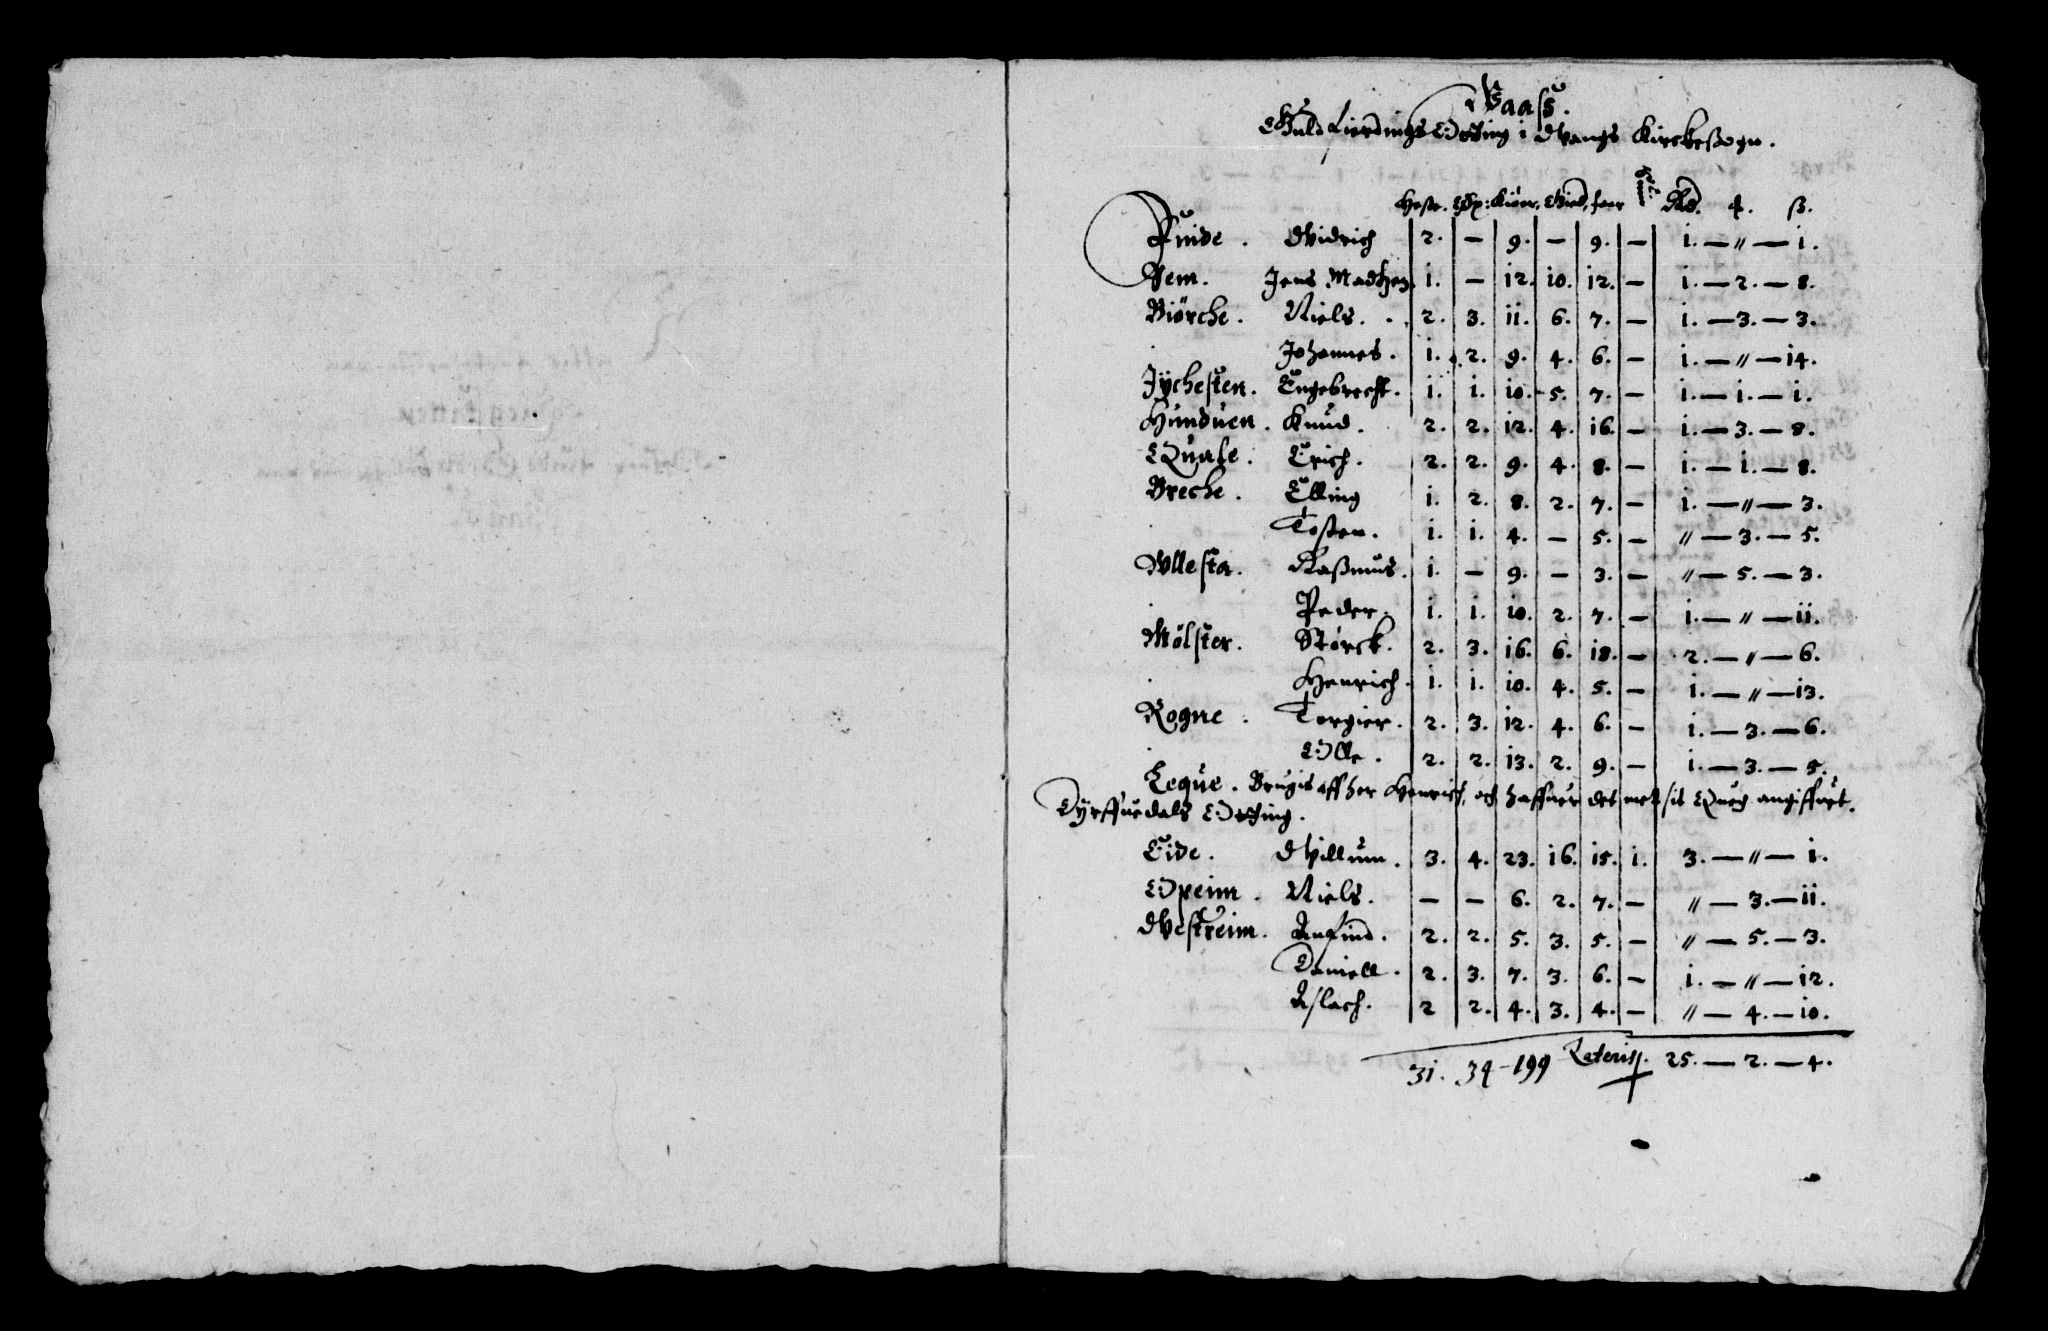 Vaass.
Guld fierdings Otting i Wangs Kirckesogn.
Heste. Øg: Kiør. Gied, faar Rd. 4. ß.
Finde. Didrich 2. — 9. — 9. — 1. — " — 1.
Rem. Jens Madtzen 1. — 12. 10. 12. — 1. — 2. — 8.
Biørche. Niels. 2. 3. 11. 6. 7. — 1. — 3. — 3.
Johannes. 1. 2. 9. 4. 6. — 1. — " — 14.
Jÿchesten. Engebrecht. 1. 1. 10. 5. 7. — 1. — 1. — 1.
Hunduen. Knud. 2. 2. 12. 4. 16. — 1. — 3. — 8.
Quale. Erich. 2. 2. 9. 4. 8. — 1. — 1. — 8.
Breche. Elling 1. 2. 8. 2. 7. — 1. — " — 3.
Tosten. 1. 1. 4. — 5. — " — 3. — 5.
Wllesta. Rassmus. 1. — 9. — 3. — " — 5. — 3.
Peder. 1. 1. 10. 2. 7. — 1. — " — 11.
Mølster. Størck. 2. 3. 16. 6. 18. — 2. — " — 6.
Henrich. 1. 1. 10. 4. 5. — 1. — " — 13.
Rogne. Torgier. 2. 3. 12. 4. 6. — 1. — 3. — 6.
Olle. 2. 2. 13. 2. 9. — 1. — 3. — 5.
Leque. Brugis aff her Henrich, och haffuer det met sit Queg angiffuet.
Dÿrffuedals Otting.
Eide. Willum. 3. 4. 23. 16. 15. 1. 3. — " — 1.
Opeim. Niels. — — 6. 2. 7. — " — 3. — 11.
Westreim. Anfind. 2. 2. 5. 3. 5. — " — 5. — 3.
Daniell. 2. 3. 7. 3. 6. — 1. — " — 12.
Aslach. 2 2. 4. 3. 4. — " — 4. — 10.
31. 34 - 199 Lateris 25. — 2. — 4.